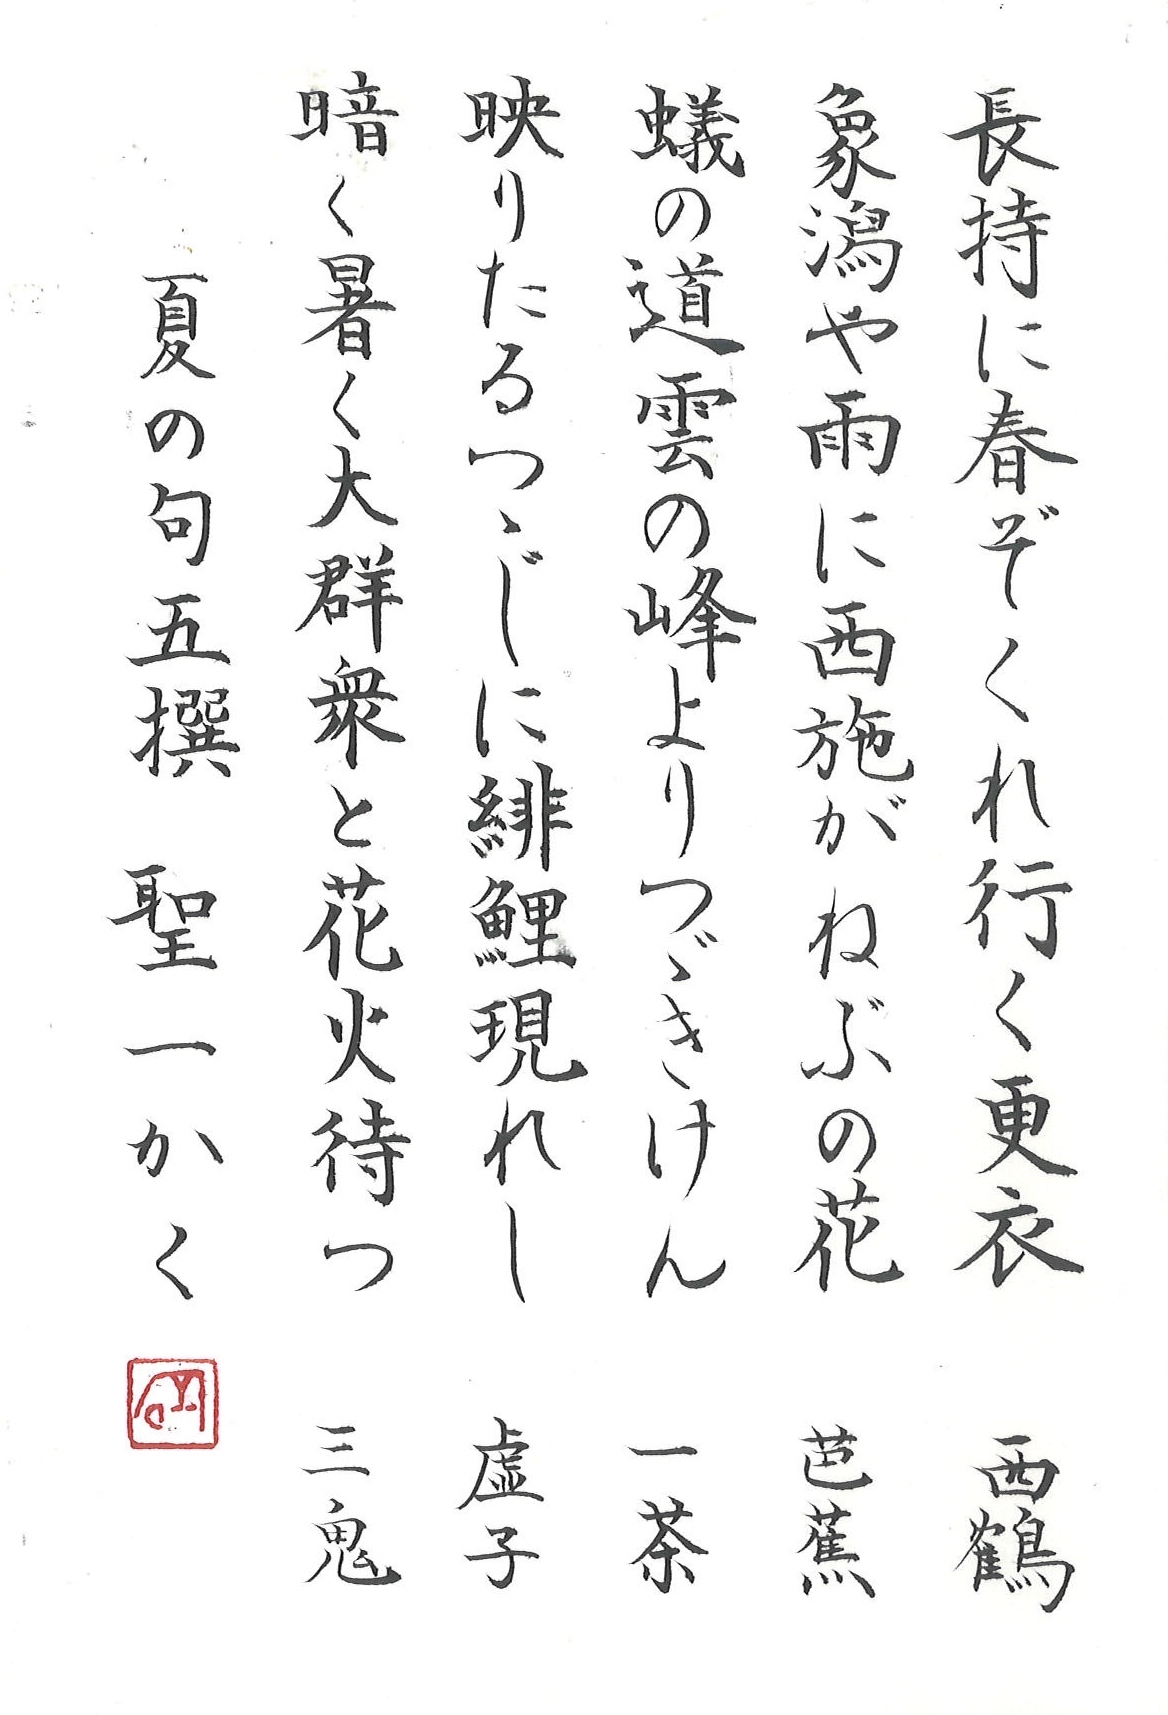 長持に春ぞくれ行く更衣 西鶴
象潟や雨に西施がねぶの花 芭蕉
蟻の道雲の峰よりつゞきけん 一茶
映りたるつゝじに緋鯉現れし 虚子
暗く暑く大群衆と花火待つ 三鬼
夏の句五撰 聖一かく